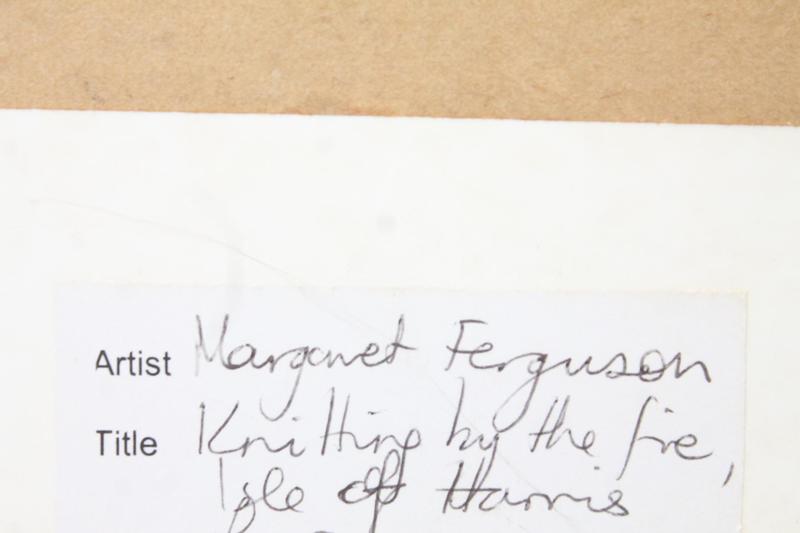 Artist Margaret Ferguson
Title Knitting by the fire,
Isle of Harris